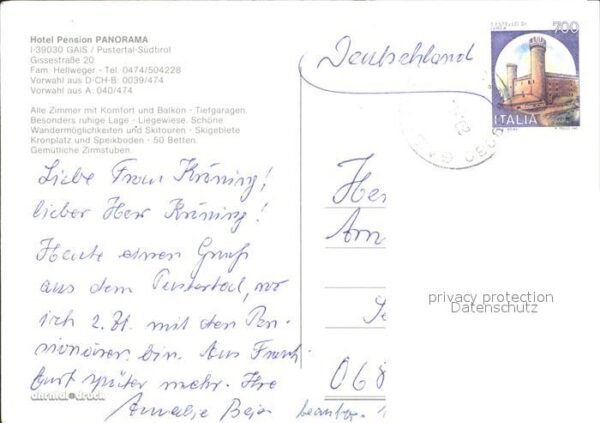 Hotel Pension PANORAMA
I-39030 GAIS / Pustertal-Südtirol
Gissestraße 20
Fam. Hellweger - Tel. 0474/504228
Vorwahl aus D-CH-B: 0039/474
Vorwahl aus A: 040/474
Alle Zimmer mit Komfort und Balkon - Tiefgaragen.
Besonders ruhige Lage - Liegewiese. Schöne
Wandermöglichkeiten und Skitouren - Skigebiete
Kronplatz und Speikboden - 50 Betten.
Gemütliche Zirmstuben.
Deutschland
700
ITALIA
Liebe Frau Kröning!
lieber Herr Kröning!
Heute einen Gruß
aus dem Pustertal, wo
ich z. Zt. mit den Pen-
sionären bin. Aus Frank-
furt später mehr. Ihre
Annalie
Her
Am
068
privacy protection
Datenschutz